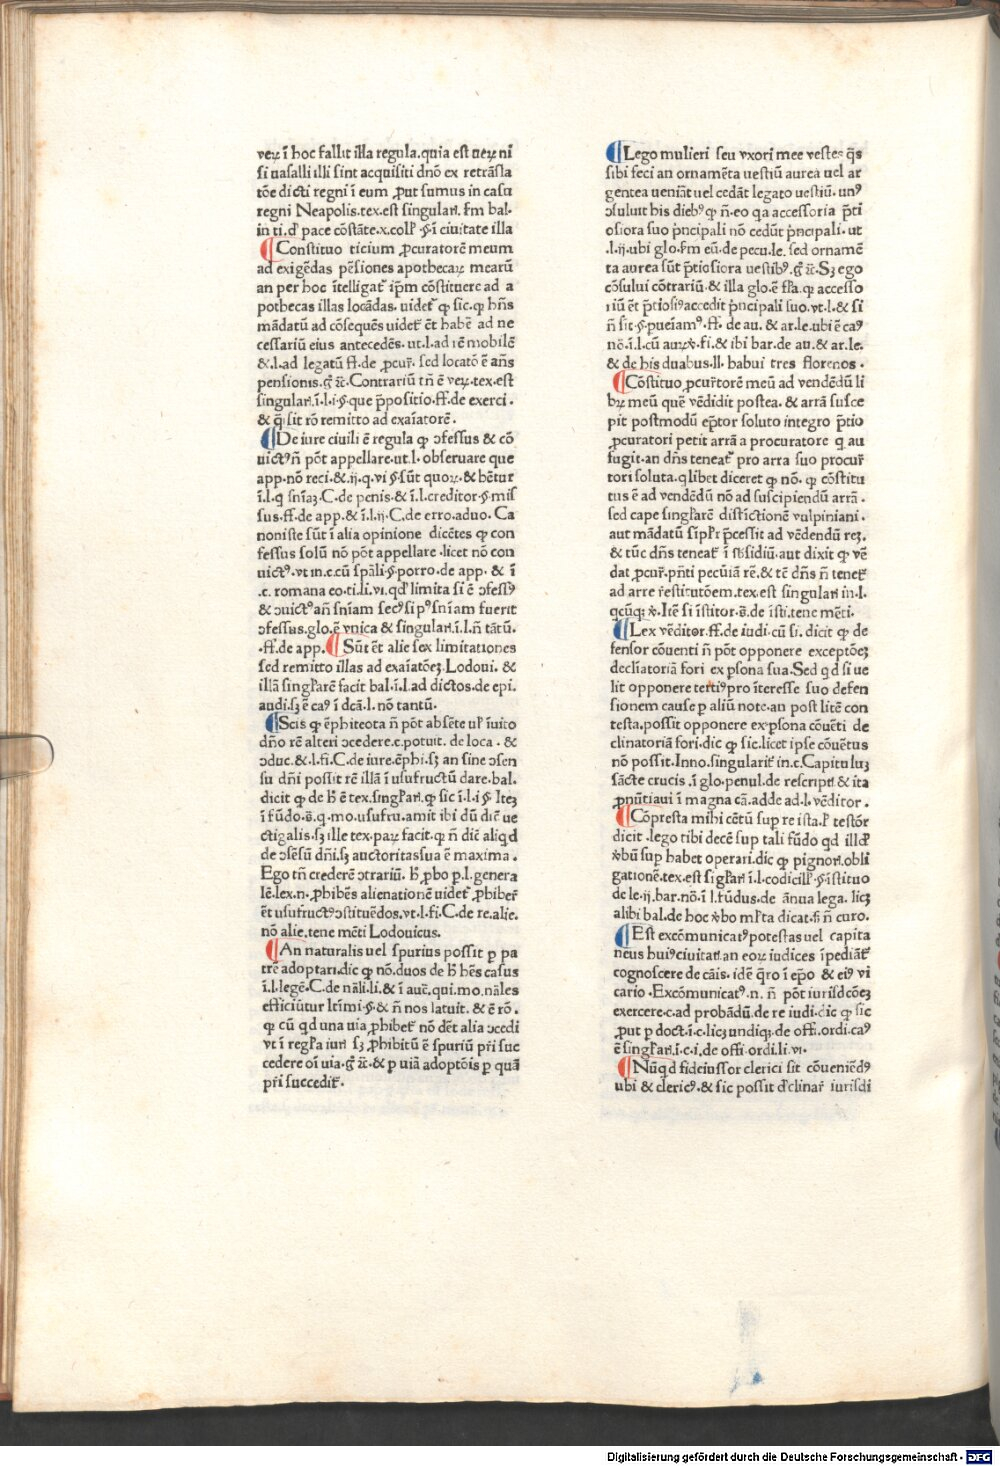 veꝝ ī hoc fallit illa regula.quia est ueꝝ ni
si uasalli illi sint acquisiti dn̄o ex retrāsla
tōe dicti regni ī eum ꝓut sumus in casu
regni Neapolis.tex.est singulari. ẜm bal.
in ti.ḋ pace cōstāte.x.coll' .§.ī ciuitate illa
¶Constituo ticium ꝓcuratorē meum
ad exigēdas pēsiones apothecaꝝ mearū
an per hoc ītelligat᷑ ip̄m cōstituere ad a
pothecas illas locādas. uidet᷑ ꝙ sic.ꝙ hn̄s
mādatū ad cōseques uidet᷑ ēt habē ad ne
cessariū eius antecedēs. ut.l.ad rē mobilē
&.l.ad legatū ff.de ꝓcur᷑. sed locatō ē an̄s
pensionis.g̊ ⁊c̄.Contrariū tn̄ ē veꝝ.tex.est
singulari.ī.l.i.§.que p̄positio.ff.de exerci.
& q̄ sit rō remitto ad exaīatorē.
¶De iure ciuili ē regula ꝙ ↄfessus & cō
uictꝰ n̄ pōt appellare.ut.l. obseruare que
app.nō reci.&.ij.q.vi §.sūt quoꝝ.& bētur
ī.l.q snīaꝫ.C.de penis.& ī.l.creditor.§.mis
sus.ff.de app.& ī.l.ij.C.de erro.aduo. Ca
noniste sūt ī alia opinione dicētes ꝙ con
fessus solū nō pōt appellare .licet nō con
uictꝰ.vt in.c.cū spāli.§.porro.de app. & ī
.c. romana eo.ti.li.vi.qd' limita si ē ↄfessꝰ
& ↄuictꝰ an̄ snīam secꝰ si pꝰ snīam fuerit
ↄfessus.glo.ē vnica & singulari.ī.l.n̄ tātū.
.ff.de app. ¶Sūt ēt alie sex limitationes
sed remitto illas ad exaīatōeꝫ.Lodoui. &
illā singl'arē facit bal.ī.l.ad dictos.de epi.
audi.sꝫ ē caꝰ ī dcā.l.nō tantū.
¶Scis ꝙ ēphiteota n̄ pōt absēte ul' īuito
dn̄o rē alteri ↄcedere.c.potuit. de loca . &
ↄduc.&.l.fi.C.de iure.ēphi.sꝫ an sine ↄsen
su dn̄i possit rē illā ī usufructū dare.bal.
dicit ꝙ de h̄ ē tex.singl'ari.ꝙ sic ī.l.i § Iteꝫ
ī fūdo.ē.q.mo.usufru.amit ibi dū dic̄ ue
ctigalis.sꝫ ille tex.paꝝ facit.ꝙ n̄ dic̄ aliqd
de ↄsēsū dn̄i.sꝫ auctoritassua ē maxima.
Ego tn̄ crederē ↄtrariū. h̄ ꝓbo p.l.genera
lē.lex.n.ꝓhibēs alienationē uidet᷑ ꝓhiber᷑
ēt usufructꝰ ↄstituēdos.vt.l.fi.C.de re.alie.
nō alie.tene mēti Lodouicus.
¶An naturalis uel spurius possit p pa
trē adoptari.dic ꝙ nō.duos de h̄ hēs casus
ī.l.legē.C.de nāli.li.& ī auc̄.qui.mo.nāles
efficiūtur ltīmi.§.& n̄ nos latuit. & ē rō.
ꝙ cū qd una uia ꝓhibet᷑ nō dēt alia ↄcedi
vt ī regl'a iuri sꝫ ꝓhibitū ē spuriū pr̄i suc
cedere oī uia.g̊ ⁊c̄.& p uiā adoptōis p quā
pr̄i succedit᷑.
¶Lego mulieri seu vxori mee vestes q̄s
sibi feci an ornamēta uestiū aurea uel ar
gentea ueniāt uel cedāt legato uestiū. unꝰ
ↄsuluit his diebꝰ ꝙ n̄.eo qa accessoria p̄ti
osiora suo p̄ncipali nō cedūt p̄ncipali. ut
.l.ij.ubi glo.ẜm eū.de pecu.le. sed ornamē
ta aurea sūt p̄tiosiora uestibꝰ.g̊ ⁊c̄.Sꝫ ego
cōsului cōtrariū.& illa glo.ē fl'a.ꝙ accesso
riū ēt p̄tiosiꝰ accedit p̄ncipali suo.vt.l.& si
n̄ sit.§.pueīamꝰ.ff. de au. & ar.le.ubi ē caꝰ
nō.ī.l.cū auꝝ.§.fi.& ibi bar.de au.& ar.le.
& de his duabus.ll. habui tres florenos.
¶Cōstituo ꝓcur᷑torē meū ad vendēdū li
bꝝ meū quē vēdidit postea. & arrā susce
pit postmodū ēptor soluto integro p̄tio
ꝓcuratori petit arrā a procuratore q au
fugit.an dn̄s teneat᷑ pro arra suo procur᷑
tori soluta.qlibet diceret ꝙ nō. ꝙ cōstitu
tus ē ad vendēdū nō ad suscipiendū arrā.
sed cape singl'arē distīctionē vulpiniani.
aut mādatū simpl'r p̄cessit ad vēdendū reꝫ.
& tūc dn̄s teneat᷑ ī sb̄sidiū.aut dixit ꝙ vē
dat ꝓcur᷑.pn̄ti pecūia rē.& tē dn̄s n̄ tenet᷑
ad arre restitutōem.tex.est singulari in.l.
qcūqꝫ.§. Itē si īstitor.ē.de īsti.tene mēti.
¶Lex vēditor.ff.de iudi.cū si. dicit ꝙ de
fensor cōuenti n̄ pōt opponere exceptōeꝫ
decl̄iatoriā fori ex psona sua.Sed qd si ue
lit opponere tertiꝰ pro īteresse suo defen
sionem cause p aliū note.an post litē con
testa.possit opponere ex psona cōuēti de
clinatoriā fori.dic ꝙ sic.licet ipse cōuētus
nō possit.Inno.singularit᷑ in.c.Capituluꝫ
sācte crucis .ī glo.penul.de rescripti & ita
ꝓnūtiaui ī magna cā.adde ad.l.vēditor.
¶Cōpresta mihi cētū sup re ista.l' testōr
dicit .lego tibi decē sup tali fūdo qd illd'
v̊bū sup habet operari.dic ꝙ pignori.obli
gationē.tex.est sigl'ari ī.l.codicill'.§.īstituo
de le.ij.bar.nō.ī l.fūdus.de ānua lega. licꝫ
alibi bal.de hoc v̊bo ml'ta dicat.h̄ n̄ curo.
¶Est excōmunicatꝰ potestas uel capita
neus huiꝰ ciuitati.an eoꝝ iudices īpediāt᷑
cognoscere de cāis. idē q̄ro ī epō & eiꝰ vi
cario .Excōmunicatꝰ. n. n̄ pōt iurisdcōeꝫ
exercere.c.ad probādū.de re iudi.dic ꝙ sic
ꝓut p doct.ī.c.licꝫ undiqꝫ.de offi.ordi.caꝰ
ē singl'ari.ī.c.i.de offi.ordi.li.vi.
¶Nūqd fideiussor clerici sit cōueniēdꝰ
ubi & clericꝰ.& sic possit d'clinar᷑ iurisdi
Digitalisierung gefördert durch die Deutsche Forschungsgemeinschaft - DFG